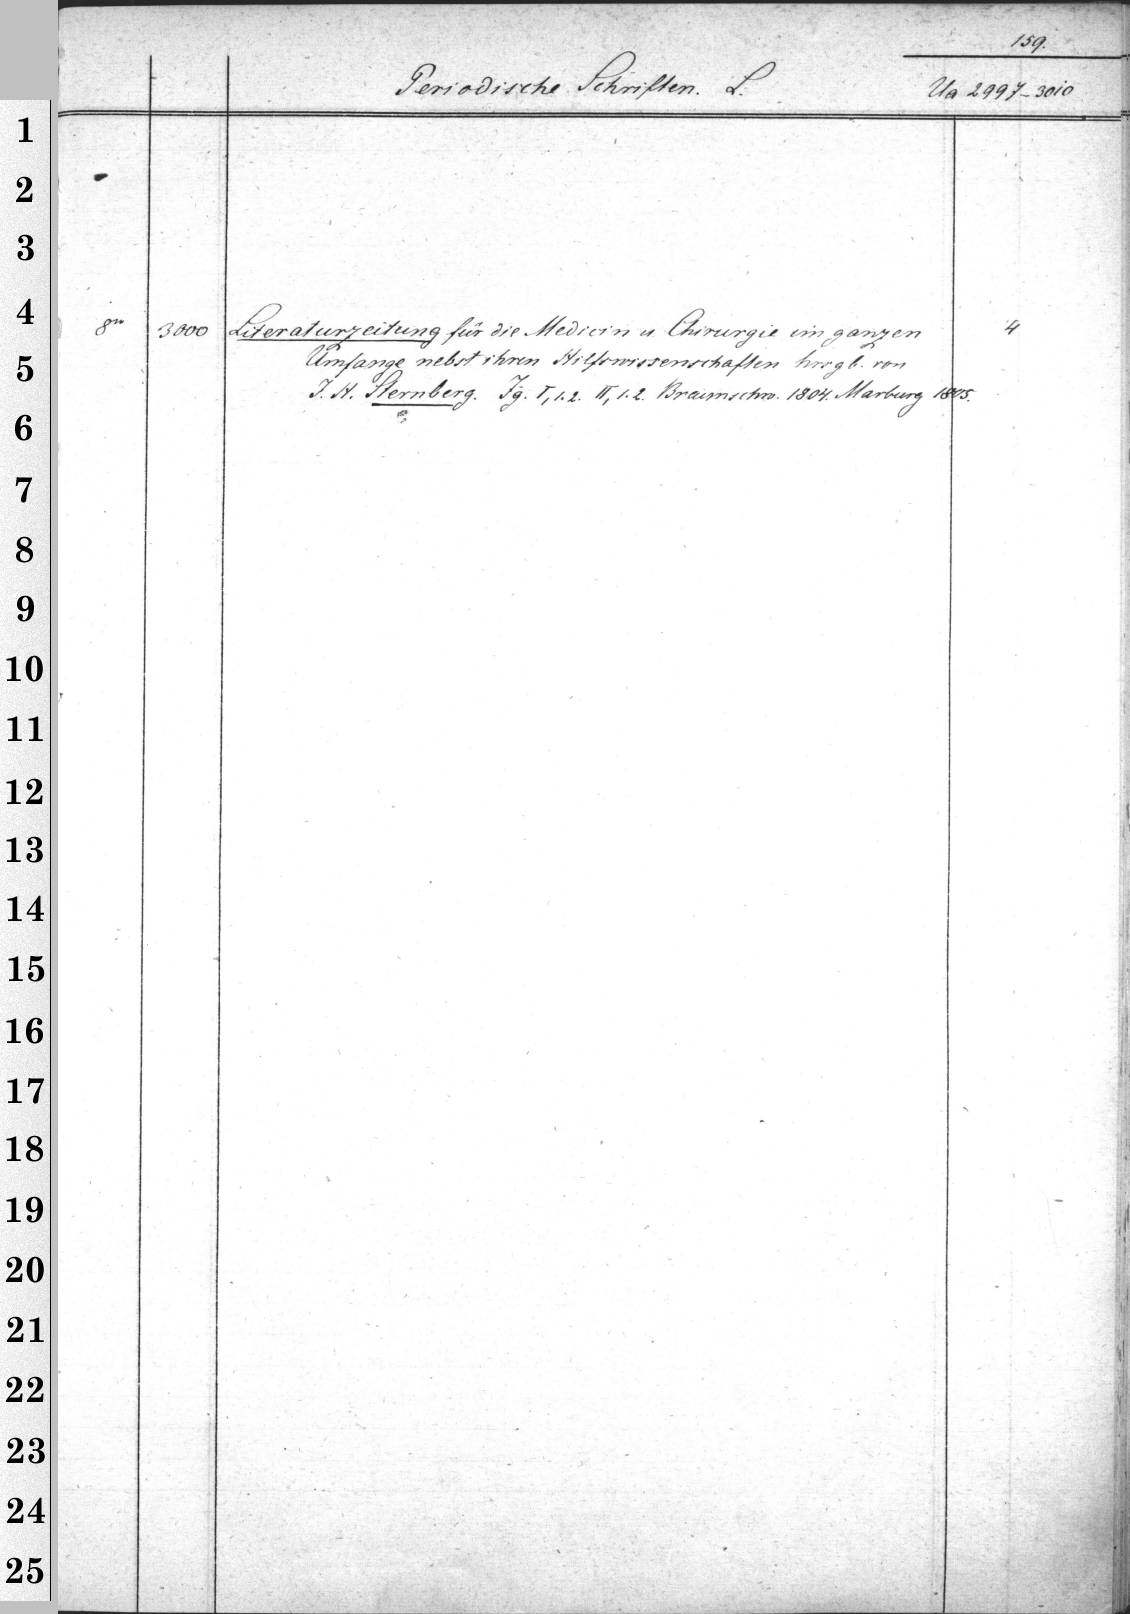 159.
Periodische Schriften. L. Ua 2997-3010
1
2
3
4
8vo 3000 Literaturzeitung für die Medicin u. Chirurgie im ganzen 4
5
Umfange nebst ihren Hilfswissenschaften hrsgb. von
J. H. Sternberg. Jg. I, 1.2. II, 1.2. Braunschw. 1804. Marburg 1805.
6
7
8
9
10
11
12
13
14
15
16
17
18
19
20
21
22
23
24
25